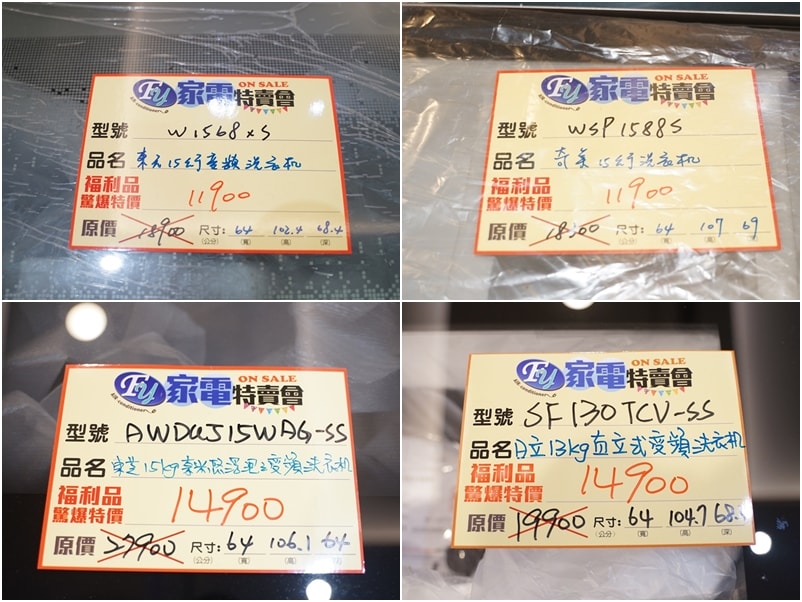 Fu 家電特賣會 ON SALE
air conditioner
型號 W1568XS
品名 東元15公斤變頻洗衣机
福利品
驚爆特價 11900
原價 18900 尺寸: 64 102.4 68.4
(公分) (寬) (高) (深)
Fu 家電特賣會 ON SALE
air conditioner
型號 WSP1588S
品名 奇美15公斤洗衣机
福利品
驚爆特價 11900
原價 18500 尺寸: 64 107 69
(公分) (寬) (高) (深)
Fu 家電特賣會 ON SALE
air conditioner
型號 AWDUJ15WAG-SS
品名 東芝15kg奈米悬浮泡泡變頻洗衣机
福利品
驚爆特價 14900
原價 27900 尺寸: 64 106.1 64
(公分) (寬) (高) (深)
Fu 家電特賣會 ON SALE
air conditioner
型號 SF130TCV-SS
品名 日立13kg直立式變頻洗衣机
福利品
驚爆特價 14900
原價 19900 尺寸: 64 104.7 68.5
(公分) (寬) (高) (深)